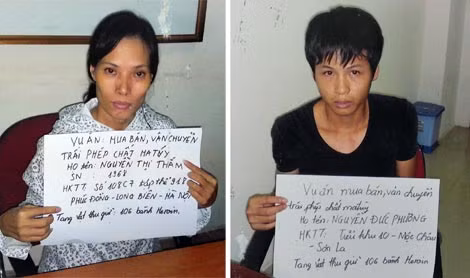 VỤ ÁN: MUA BÁN, VẬN CHUYỂN
TRÁI PHÉP CHẤT MA TÚY
HỌ TÊN: NGUYỄN THỊ THẮM
SN 1968
HKTT SỐ 108C7 tập thể 918
PHÚC ĐỒNG - LONG BIÊN - HÀ NỘI
Tang vật thu giữ: 106 bánh Heroin.
Vụ án mua bán, vận chuyển
trái phép chất ma túy
Họ tên: NGUYỄN ĐỨC PHƯỜNG
HKTT: Tiểu khu 10 - Mộc Châu
- Sơn La
Tang vật thu giữ: 106 bánh Heroin